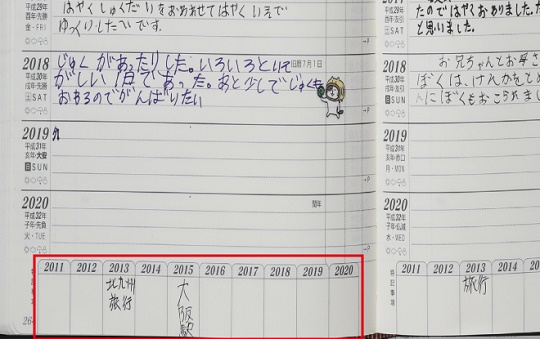 はやく しゅくだいをおわらせてはやく いえで
ゆっくりしたいです。
平成29年
金・FRI
2018
平成30年
戌年・先勝
土 SAT
旧暦7月1日
じゅくがあったりした。いろいろといそ
がしい1日であった。あと少しでじゅくも
おわるのでがんばりたい
2019
平成31年
亥年・大安
日 SUN
2020
平成32年
子年・先負
火・TUE
閏年
特記事項
2011 2012 2013 2014 2015 2016 2017 2018 2019 2020
北九州
旅行
大阪
264
平成29年
土 SAT
たのではやくおわりました。
と思いました。
2018
平成30年
日 SUN
お兄ちゃんとお母さ
ぼくは、けんかをとめ
2019
平成31年
月・MON
2020
平成32年
子年・仏滅
水・WED
特記事項
2011 2012 2013 2014 2015
旅行